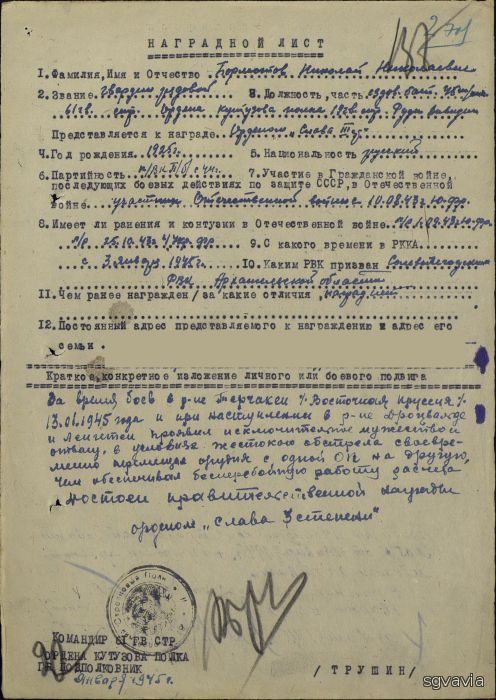 НАГРАДНОЙ ЛИСТ
1. Фамилия, Имя и Отчество Николай Николаевич
2. Звание гвардии рядовой 3. Должность, часть ездов. бат. 45 м/м
61 гв. стр. ордена Кутузова полка 19 гв. стр. дивизии
Представляется к награде Орденом "Слава III ст."
4. Год рождения 1925 г. 5. Национальность русский
6. Партийность 7. Участие в Гражданской войне,
последующих боевых действиях по защите СССР, в Отечественной
войне участник Отечественной войны с 10.08.43 г.
8. Имеет ли ранения и контузии в Отечественной войне 1.09.43 г.
25.10.43 г. 9. С какого времени в РККА.
с 3 января 1943 г. 10. Каким РВК призван Сольвычегодским
РВК Архангельской области
11. Чем ранее награжден /за какие отличия/ наград нет
12. Постоянный адрес представляемого к награждению и адрес его
семьи.
Краткое, конкретное изложение личного или боевого подвига
За время боев в р-не /Восточная Пруссия/
13.01.1945 года и при наступлении в р-не
и проявил исключительное мужество и
отвагу, в условиях жестокого обстрела своевре-
менно орудия с одной ОП на другую,
чем обеспечивал бесперебойную работу расчета
достоин правительственной награды
орденом "Слава 3 степени"
КОМАНДИР 61 ГВ СТР.
ОРДЕНА КУТУЗОВА ПОЛКА
ГВ ПОДПОЛКОВНИК
января 1945 г.
/ТРУШИН/
sgvavia